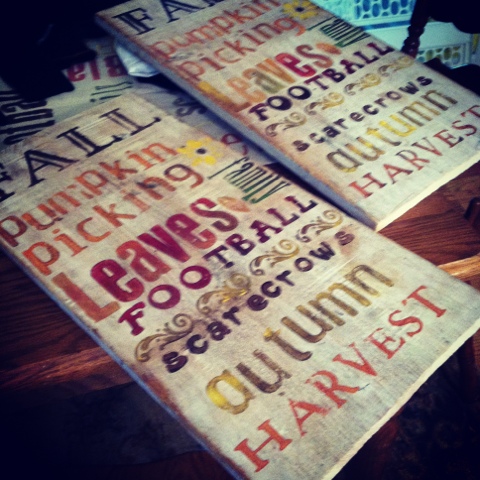 FALL
pumpkin
picking
Leaves
FOOTBALL
scarecrows
autumn
HARVEST
FA
pumpkin
picking
Leaves
FOOTBALL
scarecrows
autumn
HARVEST